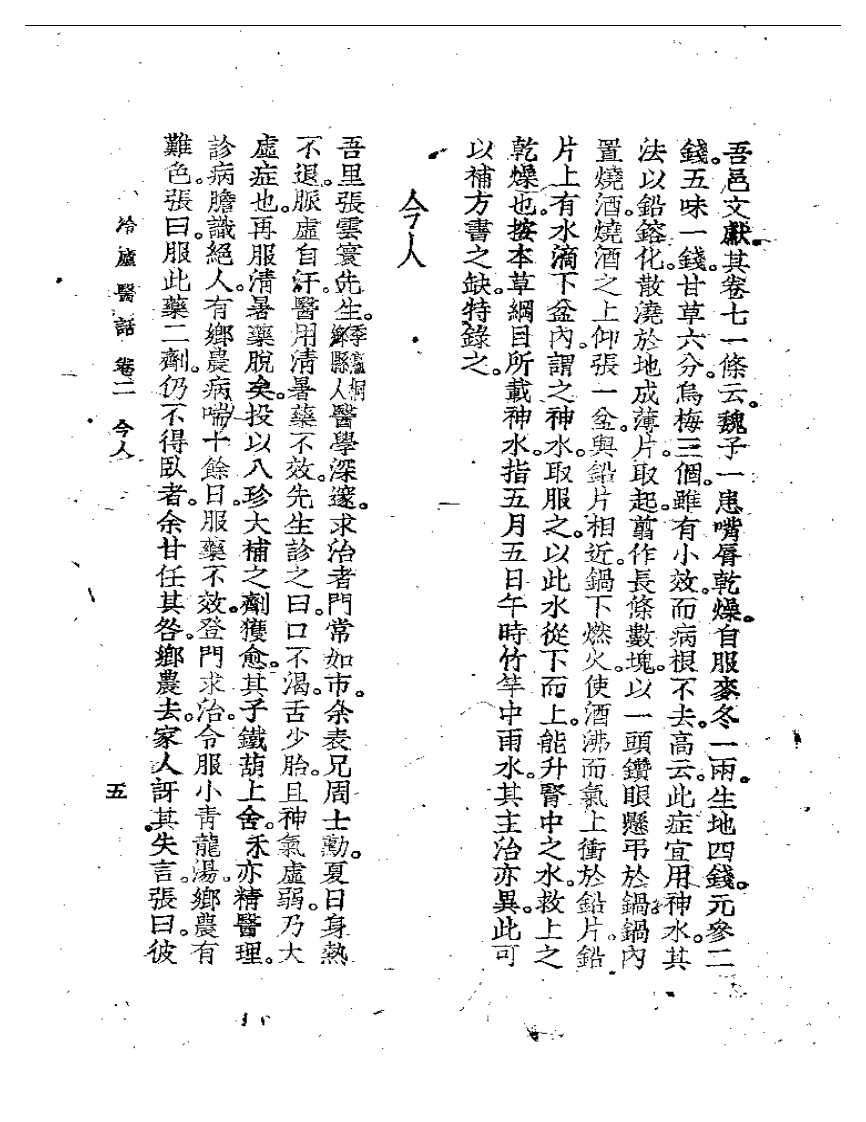 吾邑文獻。其卷七一條云。魏子一患嘴脣乾燥。自服麥冬一兩。生地四錢。元參二
錢。五味一錢。甘草六分。烏梅三個。雖有小效。而病根不去。高云。此症宜用神水。其
法以鉛鎔化。散澆於地成薄片。取起。翦作長條數塊。以一頭鑽眼懸弔於鍋。鍋內
置燒酒。燒酒之上。仰張一盆。與鉛片相近。鍋下燃火。使酒沸而氣上衝於鉛片。鉛
片上有水滴下盆內。謂之神水。取服之。以此水從下而上。能升腎中之水。救上之
乾燥也。按本草綱目所載神水。指五月五日午時竹竿中雨水。其主治亦異。此可
以補方書之缺。特錄之。
今人
吾里張雲寰先生。季瀛桐鄉縣人醫學深邃。求治者門常如市。余表兄周士勳。夏日身熱
不退。脈虛自汗。醫用清暑藥不效。先生診之曰。口不渴。舌少胎。且神氣虛弱。乃大
虛症也。再服清暑藥脫矣。投以八珍大補之劑獲愈。其子鐵葫上舍。禾亦精醫理。
診病膽識絕人。有鄉農病喘十餘日。服藥不效。登門求治。令服小青龍湯。鄉農有
難色。張曰。服此藥二劑。仍不得臥者。余甘任其咎。鄉農去。家人訝其失言。張曰。彼
冷廬醫話 卷二 今人 五